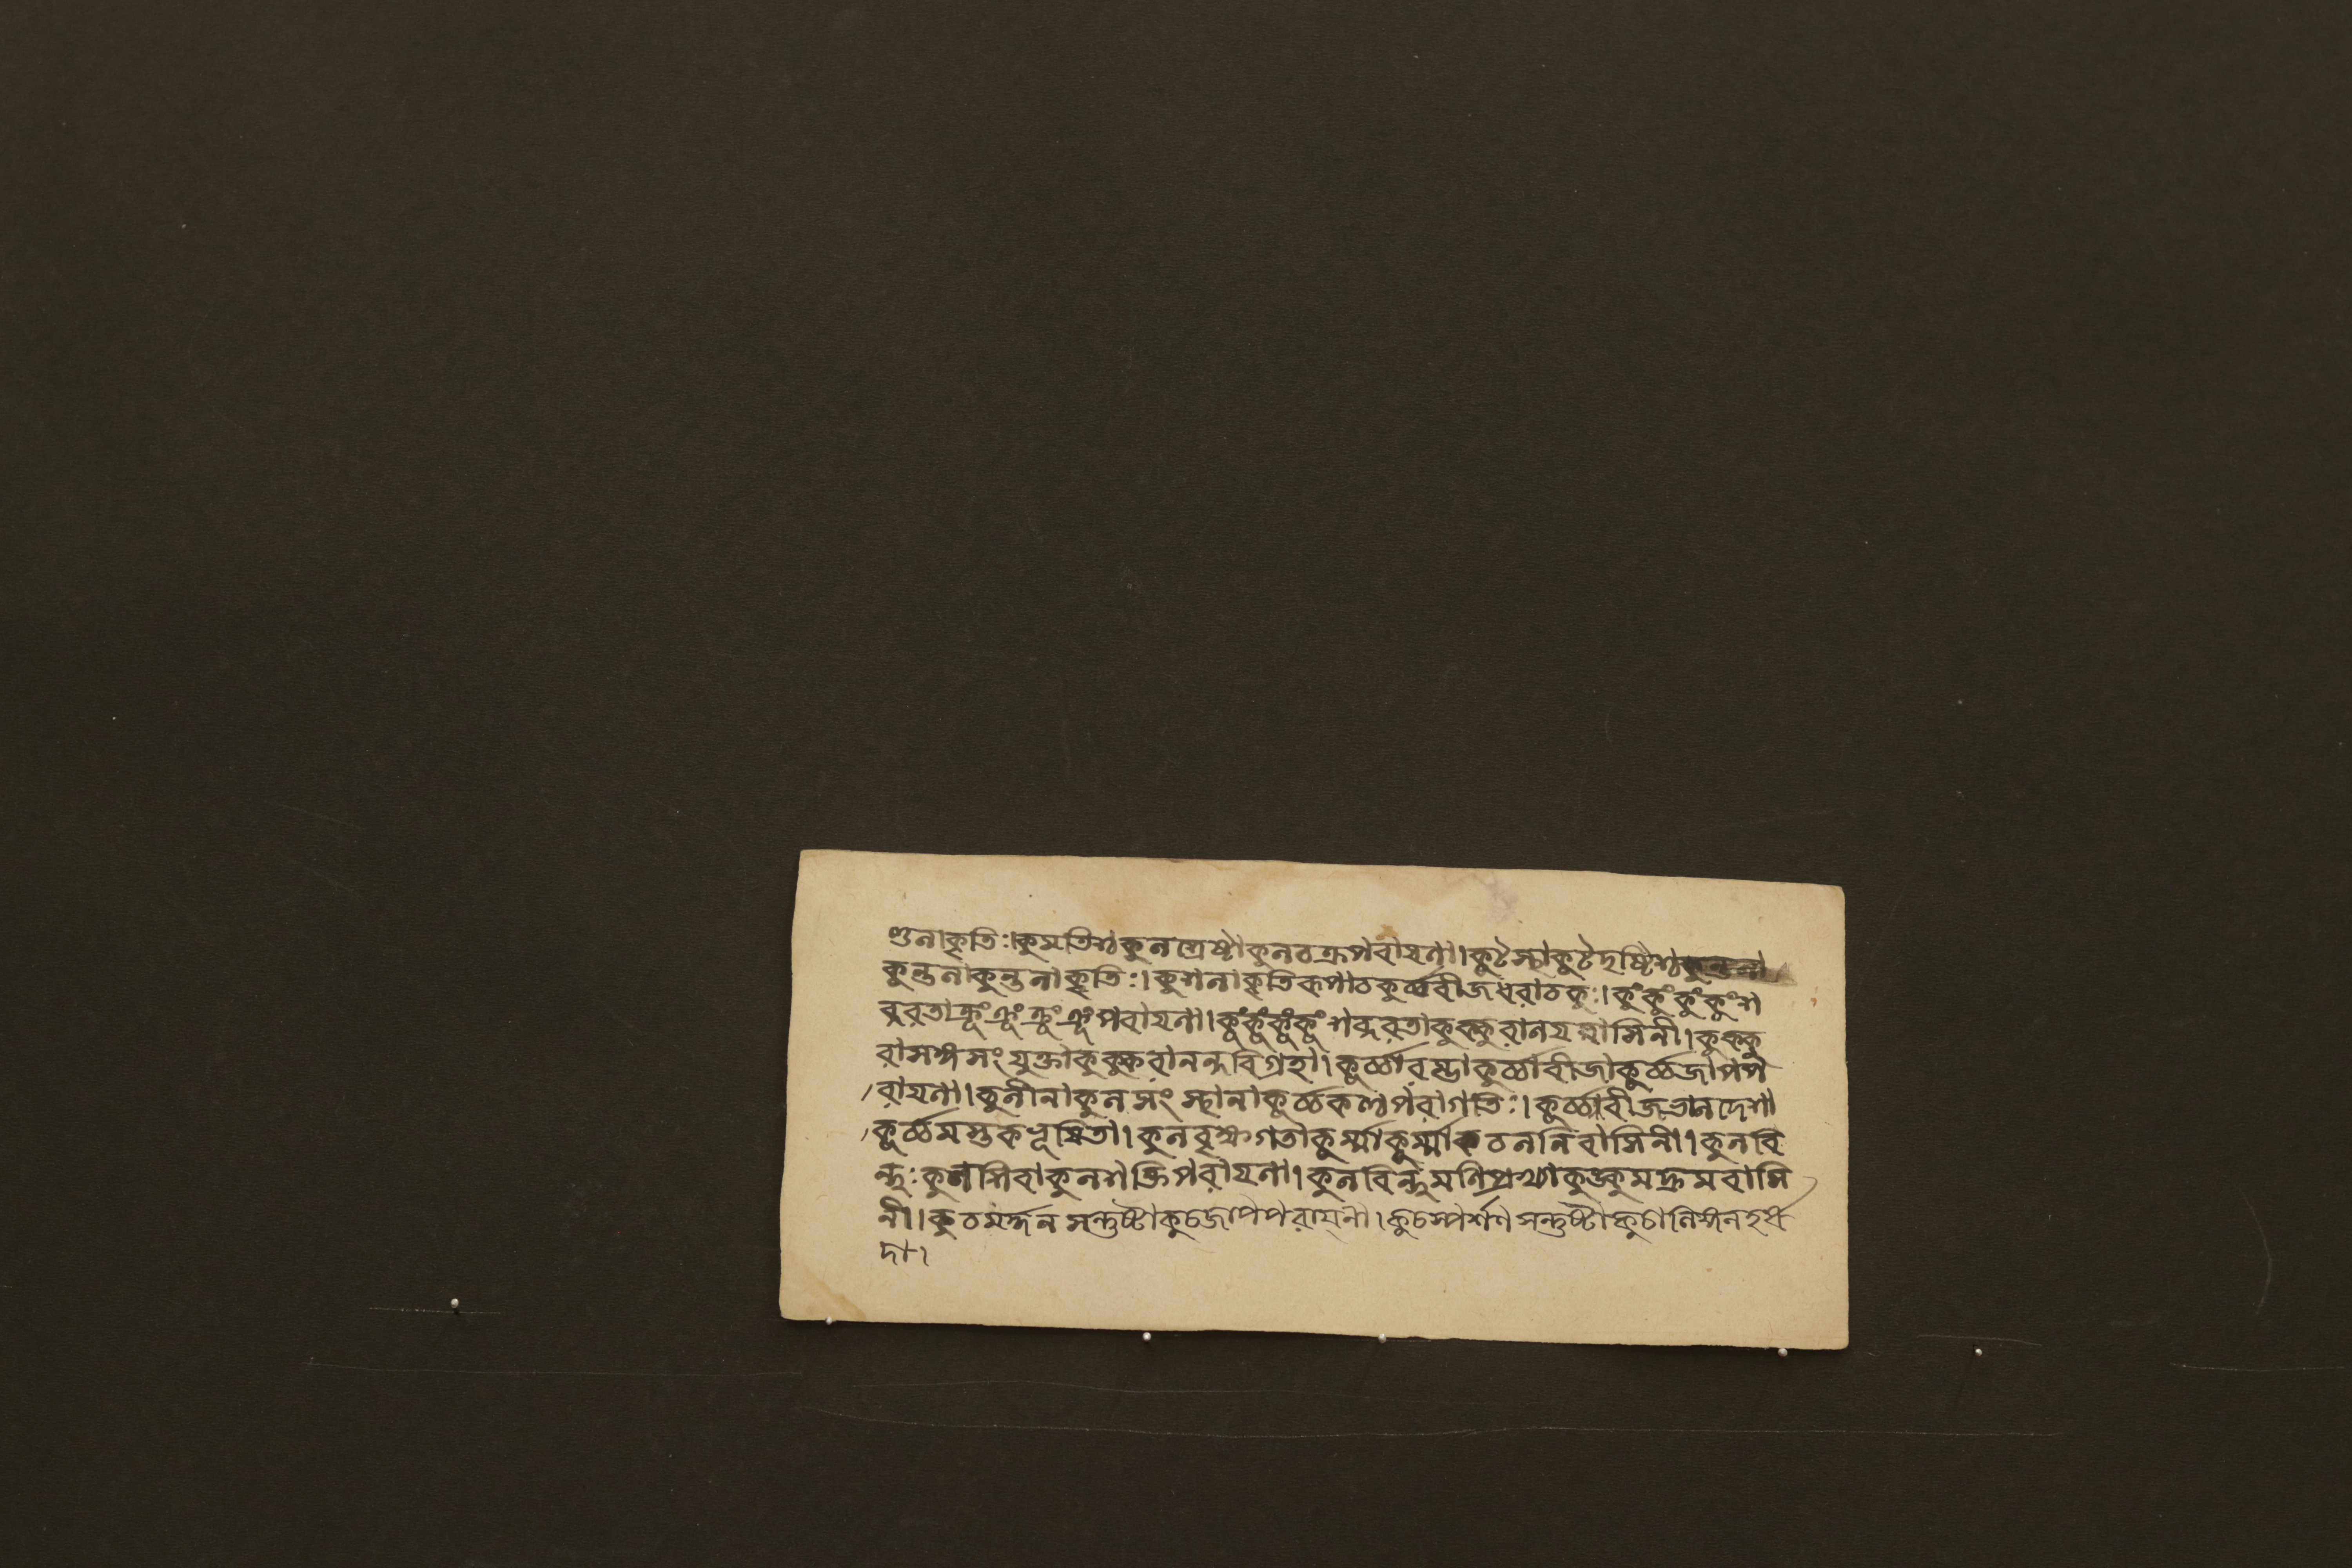 ণ্ডলাকৃতিঃ।কুমতিশ্চকুলশ্রেষ্ঠাকুলচক্রপরায়ণা।কুটস্থাকুটদৃষ্টিশ্চকুন্তলা
কুন্তলাকুন্তলাকৃতিঃ।কুশলাকৃতিরূপাচকূর্চ্চবীজধরাচকুঃ।কুংকুংকুংকুংশ
ব্দরতাক্রূংক্রূংক্রূংক্রূংপরায়ণা।কুংকুংকুংকুংশব্দরতাকুক্কুরালয়বাসিনী।কুক্কু
রাসঙ্গসংযুক্তাকুক্কুরানন্দবিগ্রহা।কূর্চ্চারম্ভাকূর্চ্চাবীজাকূর্চ্চজাপপ
রায়ণা।কুলীনাকুলসংস্থানাকূর্চ্চকণ্ঠপরাগতিঃ।কূর্চ্চাবীজভালদেশা
কূর্চ্চমস্তকভূষিতা।কুলবৃক্ষগতাকূর্ম্মাকূর্ম্মাচলনিবাসিনী।কুলবি
ন্দুঃকুলশিবাকুলশক্তিপরায়ণা।কুলবিন্দুমণিপ্রখ্যাকুঙ্কুমদ্রুমবাসি
নী।কুচমর্দ্দনসন্তুষ্টাকুচজাপপরায়ণী।কুচস্পর্শণসন্তুষ্টাকুচালিঙ্গনহর্ষ
দা।